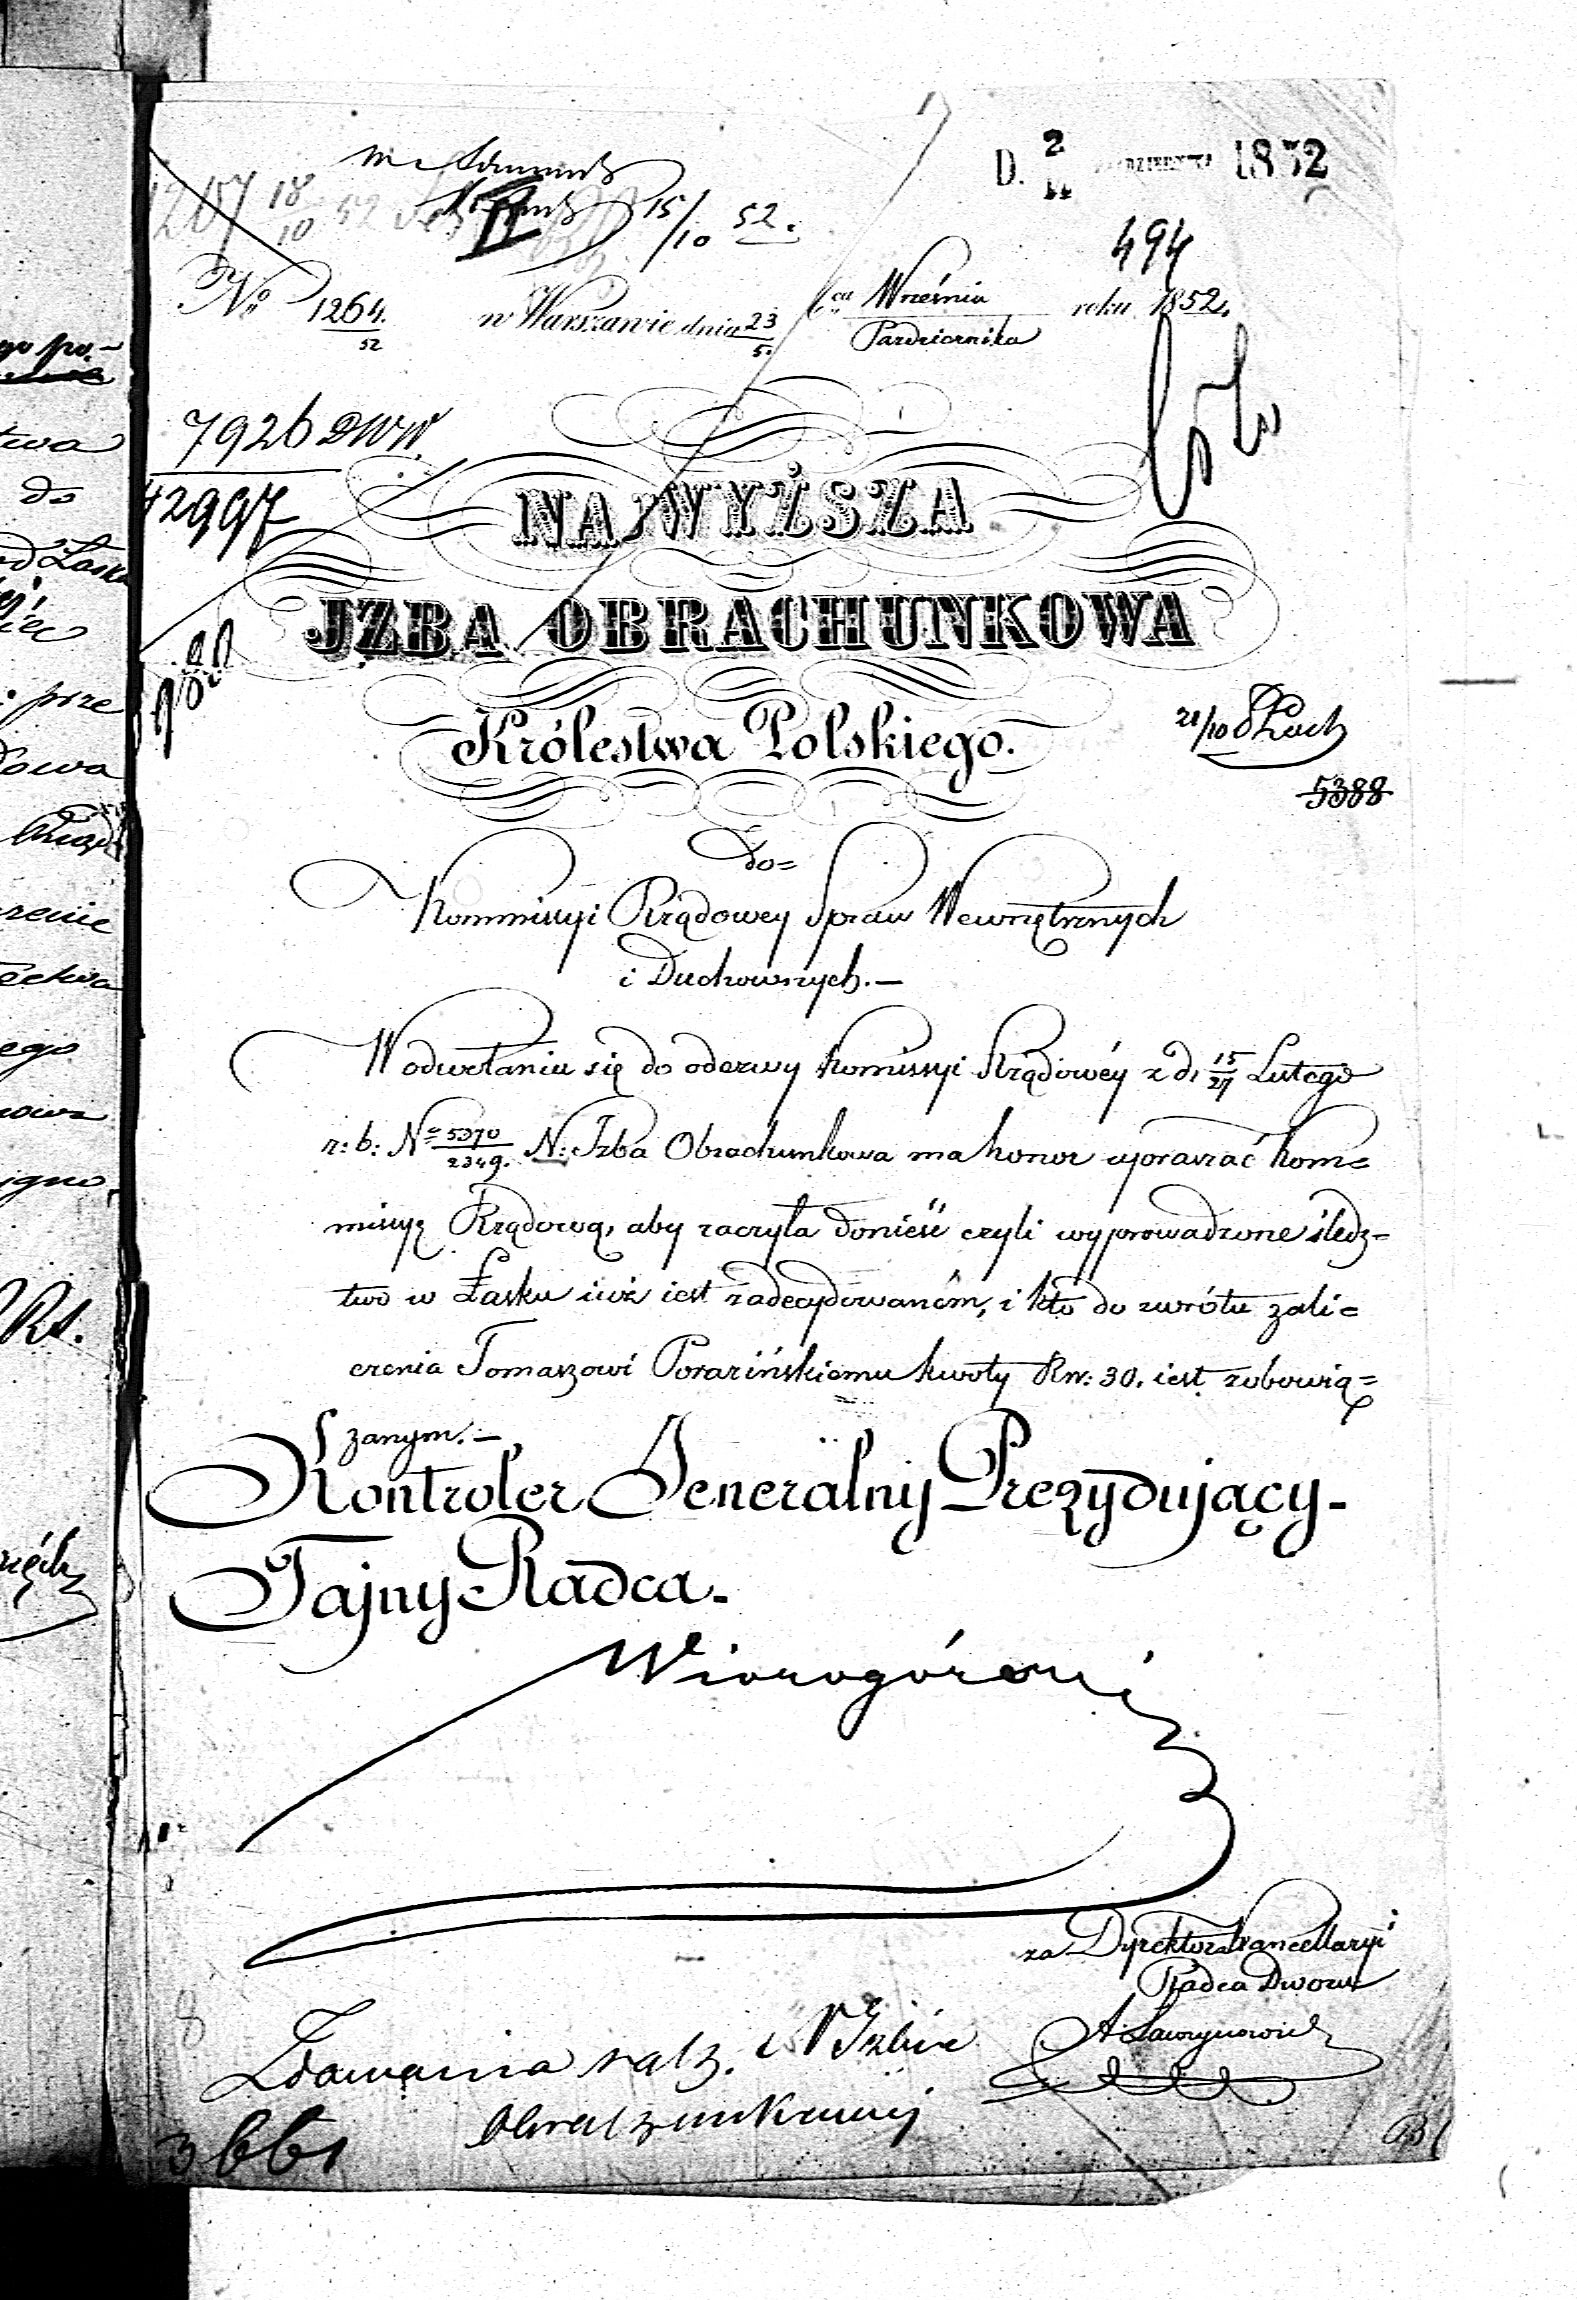 D. 2 1852
15/10 52.
18/10 52
494
No 1264./52 w Warszawie dnia 23/5. Września/Października roku 1852.
7926 DWW.
42997
NAJWYŻSZA
JZBA OBRACHUNKOWA
Królestwa Polskiego.
21/10
5388
Do=
Kommissyi Rządowey Spraw Wewnętrznych
i Duchownych.—
W odwołaniu się do odezwy Kommissyi Rządowéy z d. 15/27 Lutego
r: b: No 5370/2349. N: Izba Obrachunkowa ma honor upraszać Kom=
missyę Rządową, aby raczyła donieść czyli wyprowadzone śledz=
two w Łasku iuż iest zadecydowaném, i kto do zwrótu zali=
czenia Tomaszowi Porazińskiemu kwoty Rsr: 30. iest zobowią=
zanym.—
Kontroler Jeneralny Prezydujący-
Tajny Radca.
za Dyrektora Kancellaryi
Radca Dworu
A Ławrynowicz
w N Izbie
Obrachunkowej
3661